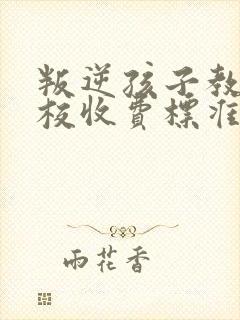 叛逆孩子教
校收費標准
雨花香